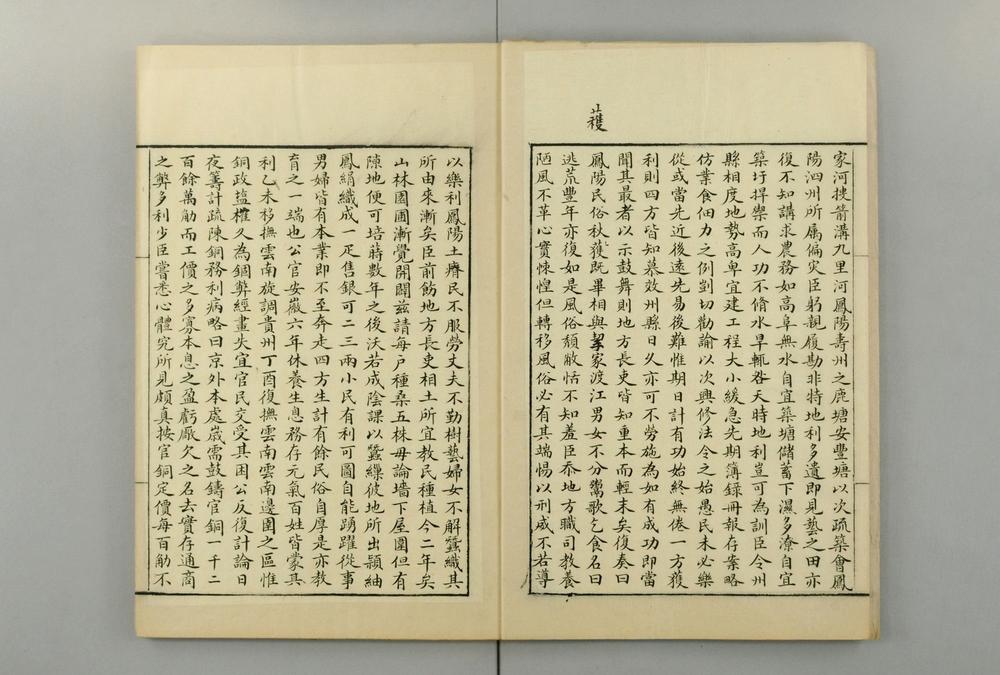 家河搜箭溝九里河鳳陽壽州之鹿塘安豐塘以次疏築會鳳
陽泗州所屬偏灾臣躬親履勘非特地利多遺即見藝之田亦
復不知講求農務如高阜無水自宜築塘儲蓄下濕多潦自宜
築圩捍禦而人功不脩水旱輒咎天時地利豈可為訓臣令州
縣相度地勢高卑宜建工程大小緩急先期簿錄冊報存案略
仿業食佃力之例剴切勸諭以次興修法令之始愚民未必樂
從或當先近後遠先易後難惟期日計有功始終無倦一方獲
利則四方皆知慕效州縣日久亦可不勞施為如有成功即當
聞其最者以示鼓舞則地方長吏皆知重本而輕末矣復奏曰
鳳陽民俗秋獲既畢相與挈家渡江男女不分鬻歌乞食名曰
逃荒豐年亦復如是風俗頹敝恬不知羞臣忝地方職司教養
陋風不革心實悚惶但轉移風俗必有其端惕以刑威不若導
穫
以樂利鳳陽土瘠民不服勞丈夫不勤樹藝婦女不解蠶織其
所由來漸矣臣前飭地方長吏相土所宜教民種植今二年矣
山林園圃漸覺開闢茲請每戶種桑五株毋論墻下屋圍但有
隙地便可培蒔數年之後沃若成陰課以蠶繅彼地所出潁紬
鳳絹織成一疋售銀可二三兩小民有利可圖自能踴躍從事
男婦皆有本業即不至奔走四方生計有餘民俗自厚是亦教
育之一端也公官安徽六年休養生息務存元氣百姓皆蒙其
利乙未移撫雲南旋調貴州丁酉復撫雲南雲南邊圉之區惟
銅政盐權久為錮弊經畫失宜官民交受其困公反復計論日
夜籌計疏陳銅務利病略曰京外本處歲需鼓鑄官銅一千二
百餘萬觔而工價之多寡本息之盈虧厰欠之名去實存通商
之弊多利少臣嘗悉心體究所見頗真按官銅定價每百觔不